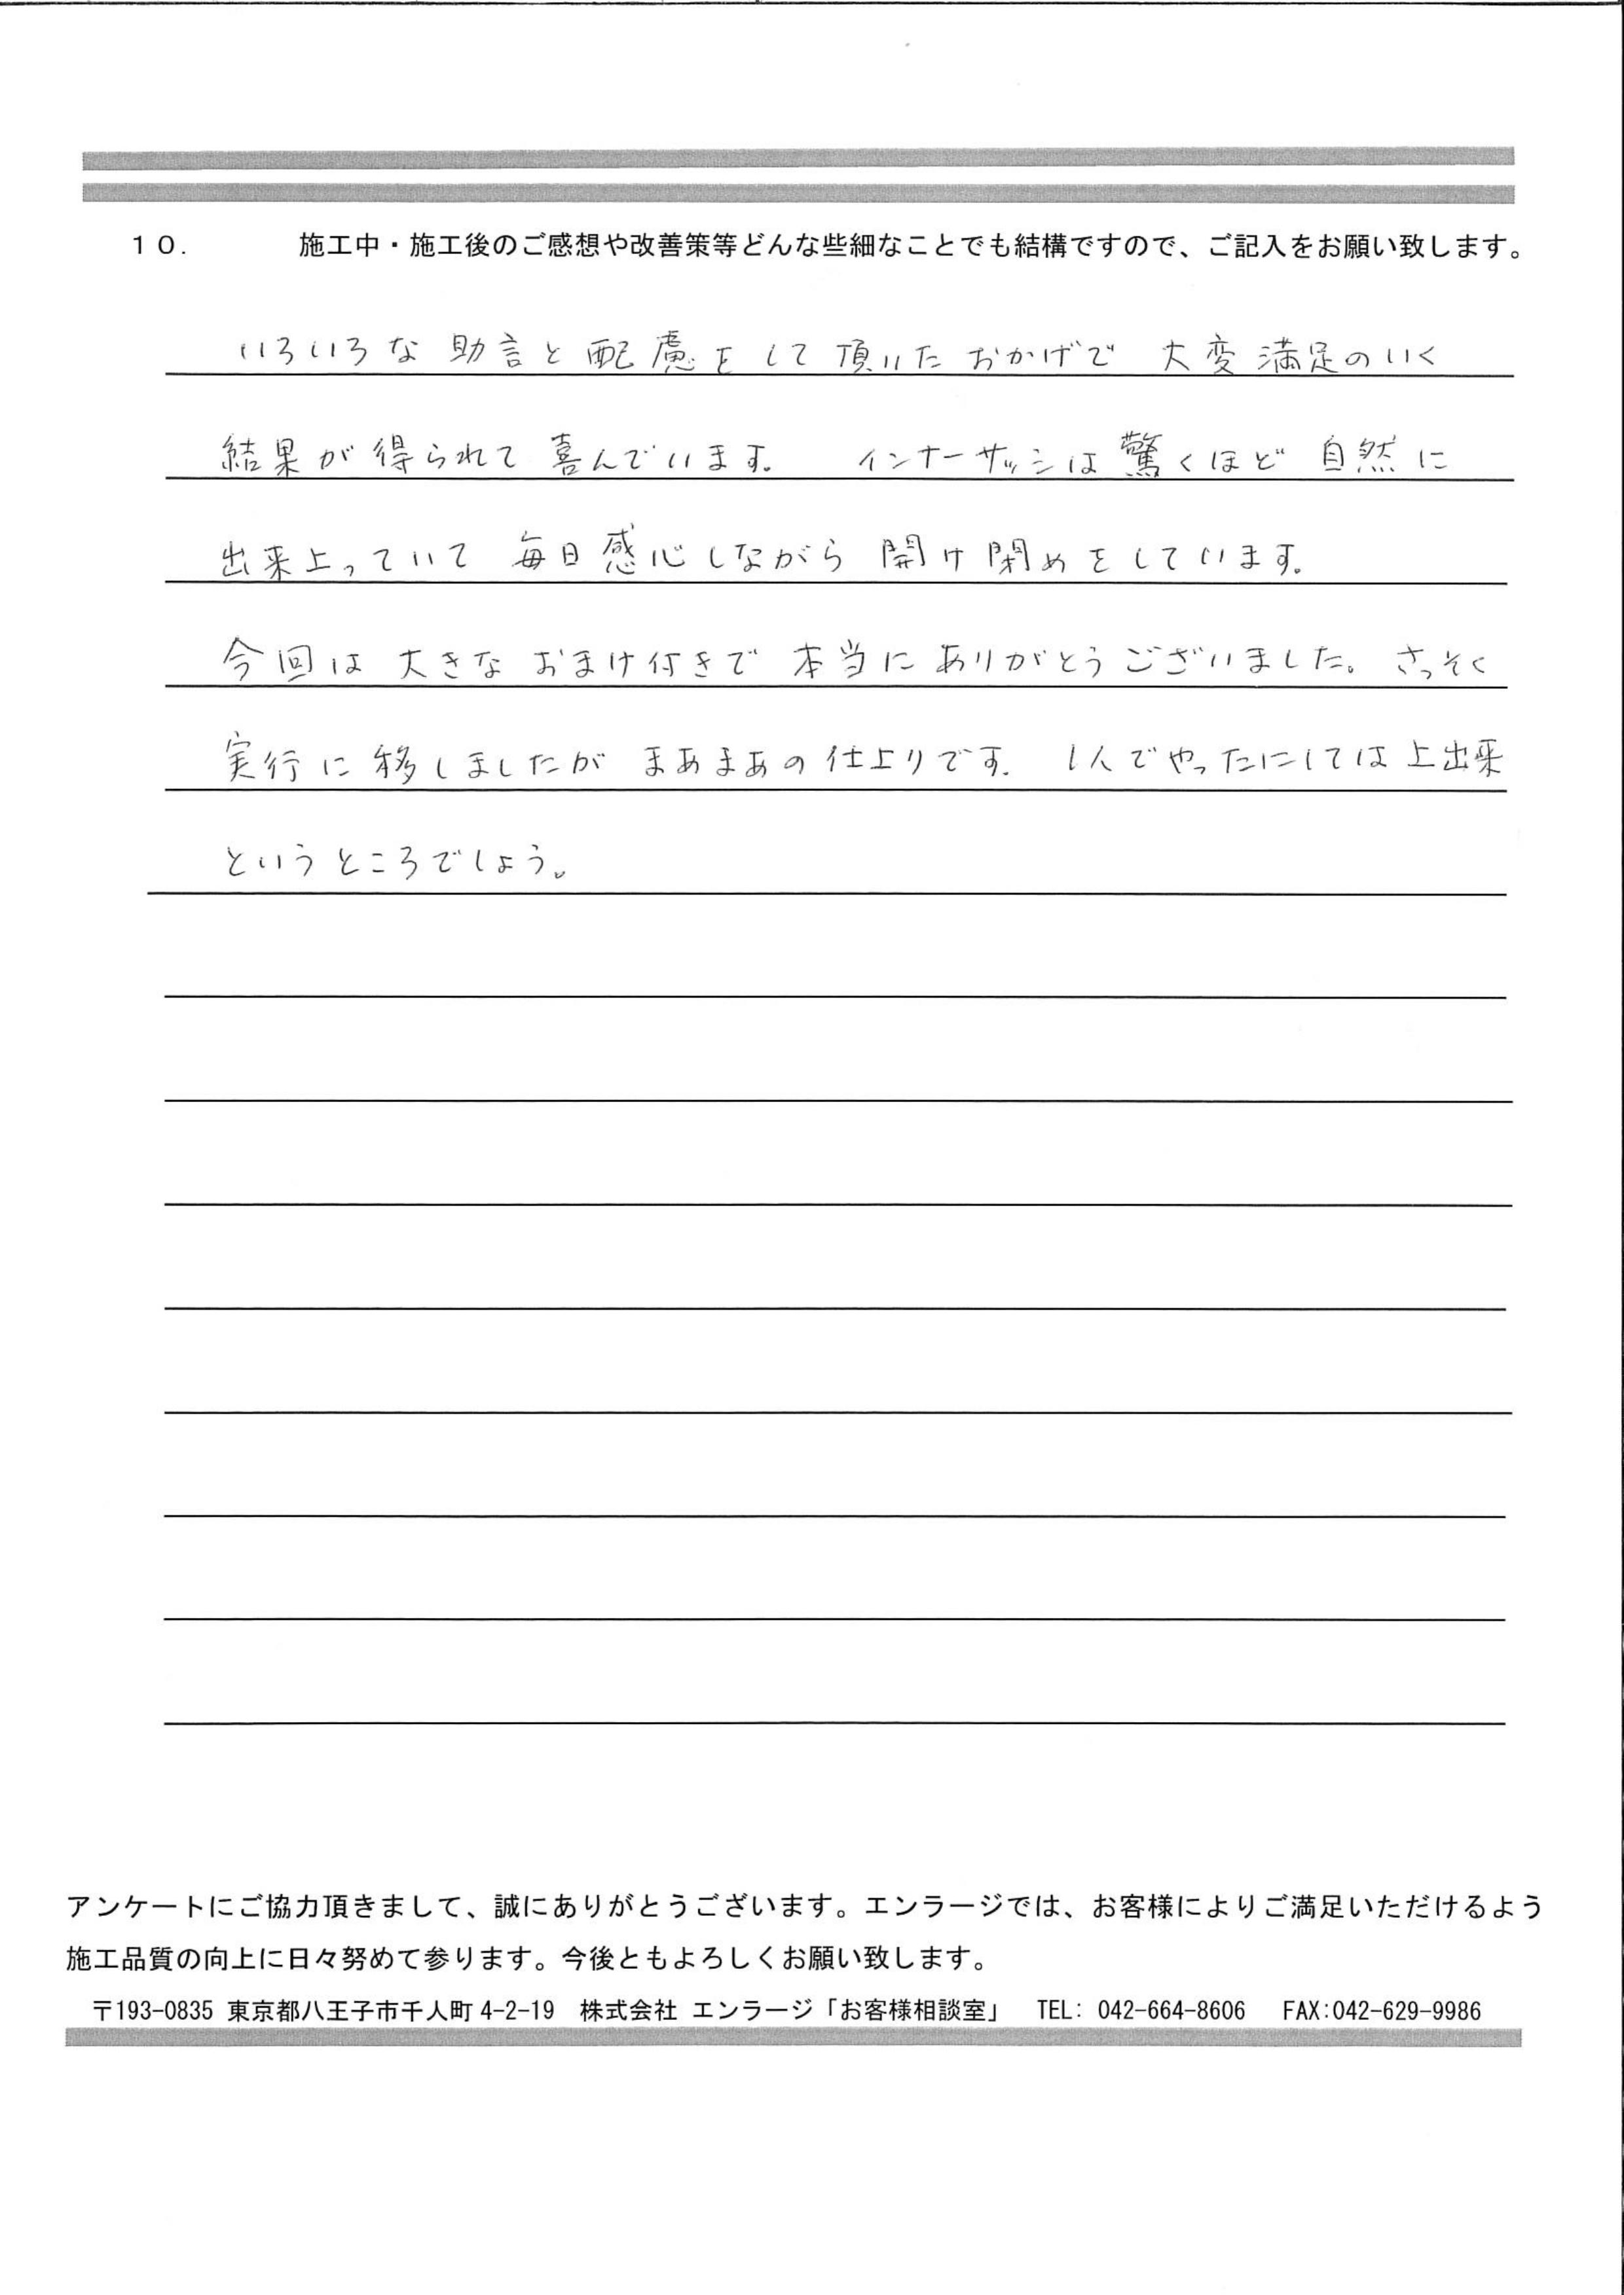 10.　施工中・施工後のご感想や改善策等どんな些細なことでも結構ですので、ご記入をお願い致します。
いろいろな助言と配慮をして頂いたおかげで 大変満足のいく
結果が得られて喜んでいます。 インナーサッシは驚くほど自然に
出来上っていて 毎日感心しながら 開け閉めをしています。
今回は大きなおまけ付きで 本当にありがとうございました。さっそく
実行に移しましたが まあまあの仕上りです。 1人でやったにしては上出来
というところでしょう。
アンケートにご協力頂きまして、誠にありがとうございます。エンラージでは、お客様によりご満足いただけるよう
施工品質の向上に日々努めて参ります。今後ともよろしくお願い致します。
〒193-0835 東京都八王子市千人町 4-2-19　株式会社 エンラージ「お客様相談室」　TEL: 042-664-8606　FAX:042-629-9986